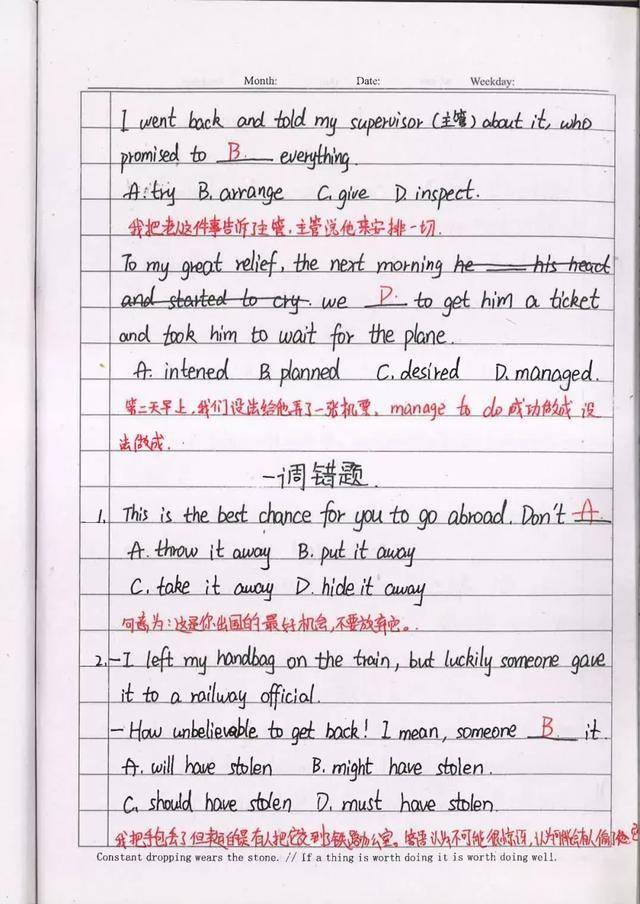 Month: Date: Weekday:
I went back and told my supervisor (主管) about it, who
promised to B. everything.
A. try B. arrange C. give D. inspect.
我把老人这件事告诉了主管,主管说他来安排一切.
To my great relief, the next morning he his head
and started to cry. we D. to get him a ticket
and took him to wait for the plane.
A. intened B. planned C. desired D. managed.
第二天早上,我们设法给他弄了一张机票. manage to do 成功做成 设
法做成.
一调错题.
1. This is the best chance for you to go abroad. Don't A
A. throw it away B. put it away
C. take it away D. hide it away
句意为:这是你出国的最好机会,不要放弃它.
2. —I left my handbag on the train, but luckily someone gave
it to a railway official.
— How unbelievable to get back! I mean, someone B. it
A. will have stolen B. might have stolen.
C. should have stolen D. must have stolen.
我把手包丢了但幸运的是有人把它交到了铁路办公室。 认为不可能很惊讶,认为可能会有人偷了
Constant dropping wears the stone. // If a thing is worth doing it is worth doing well.